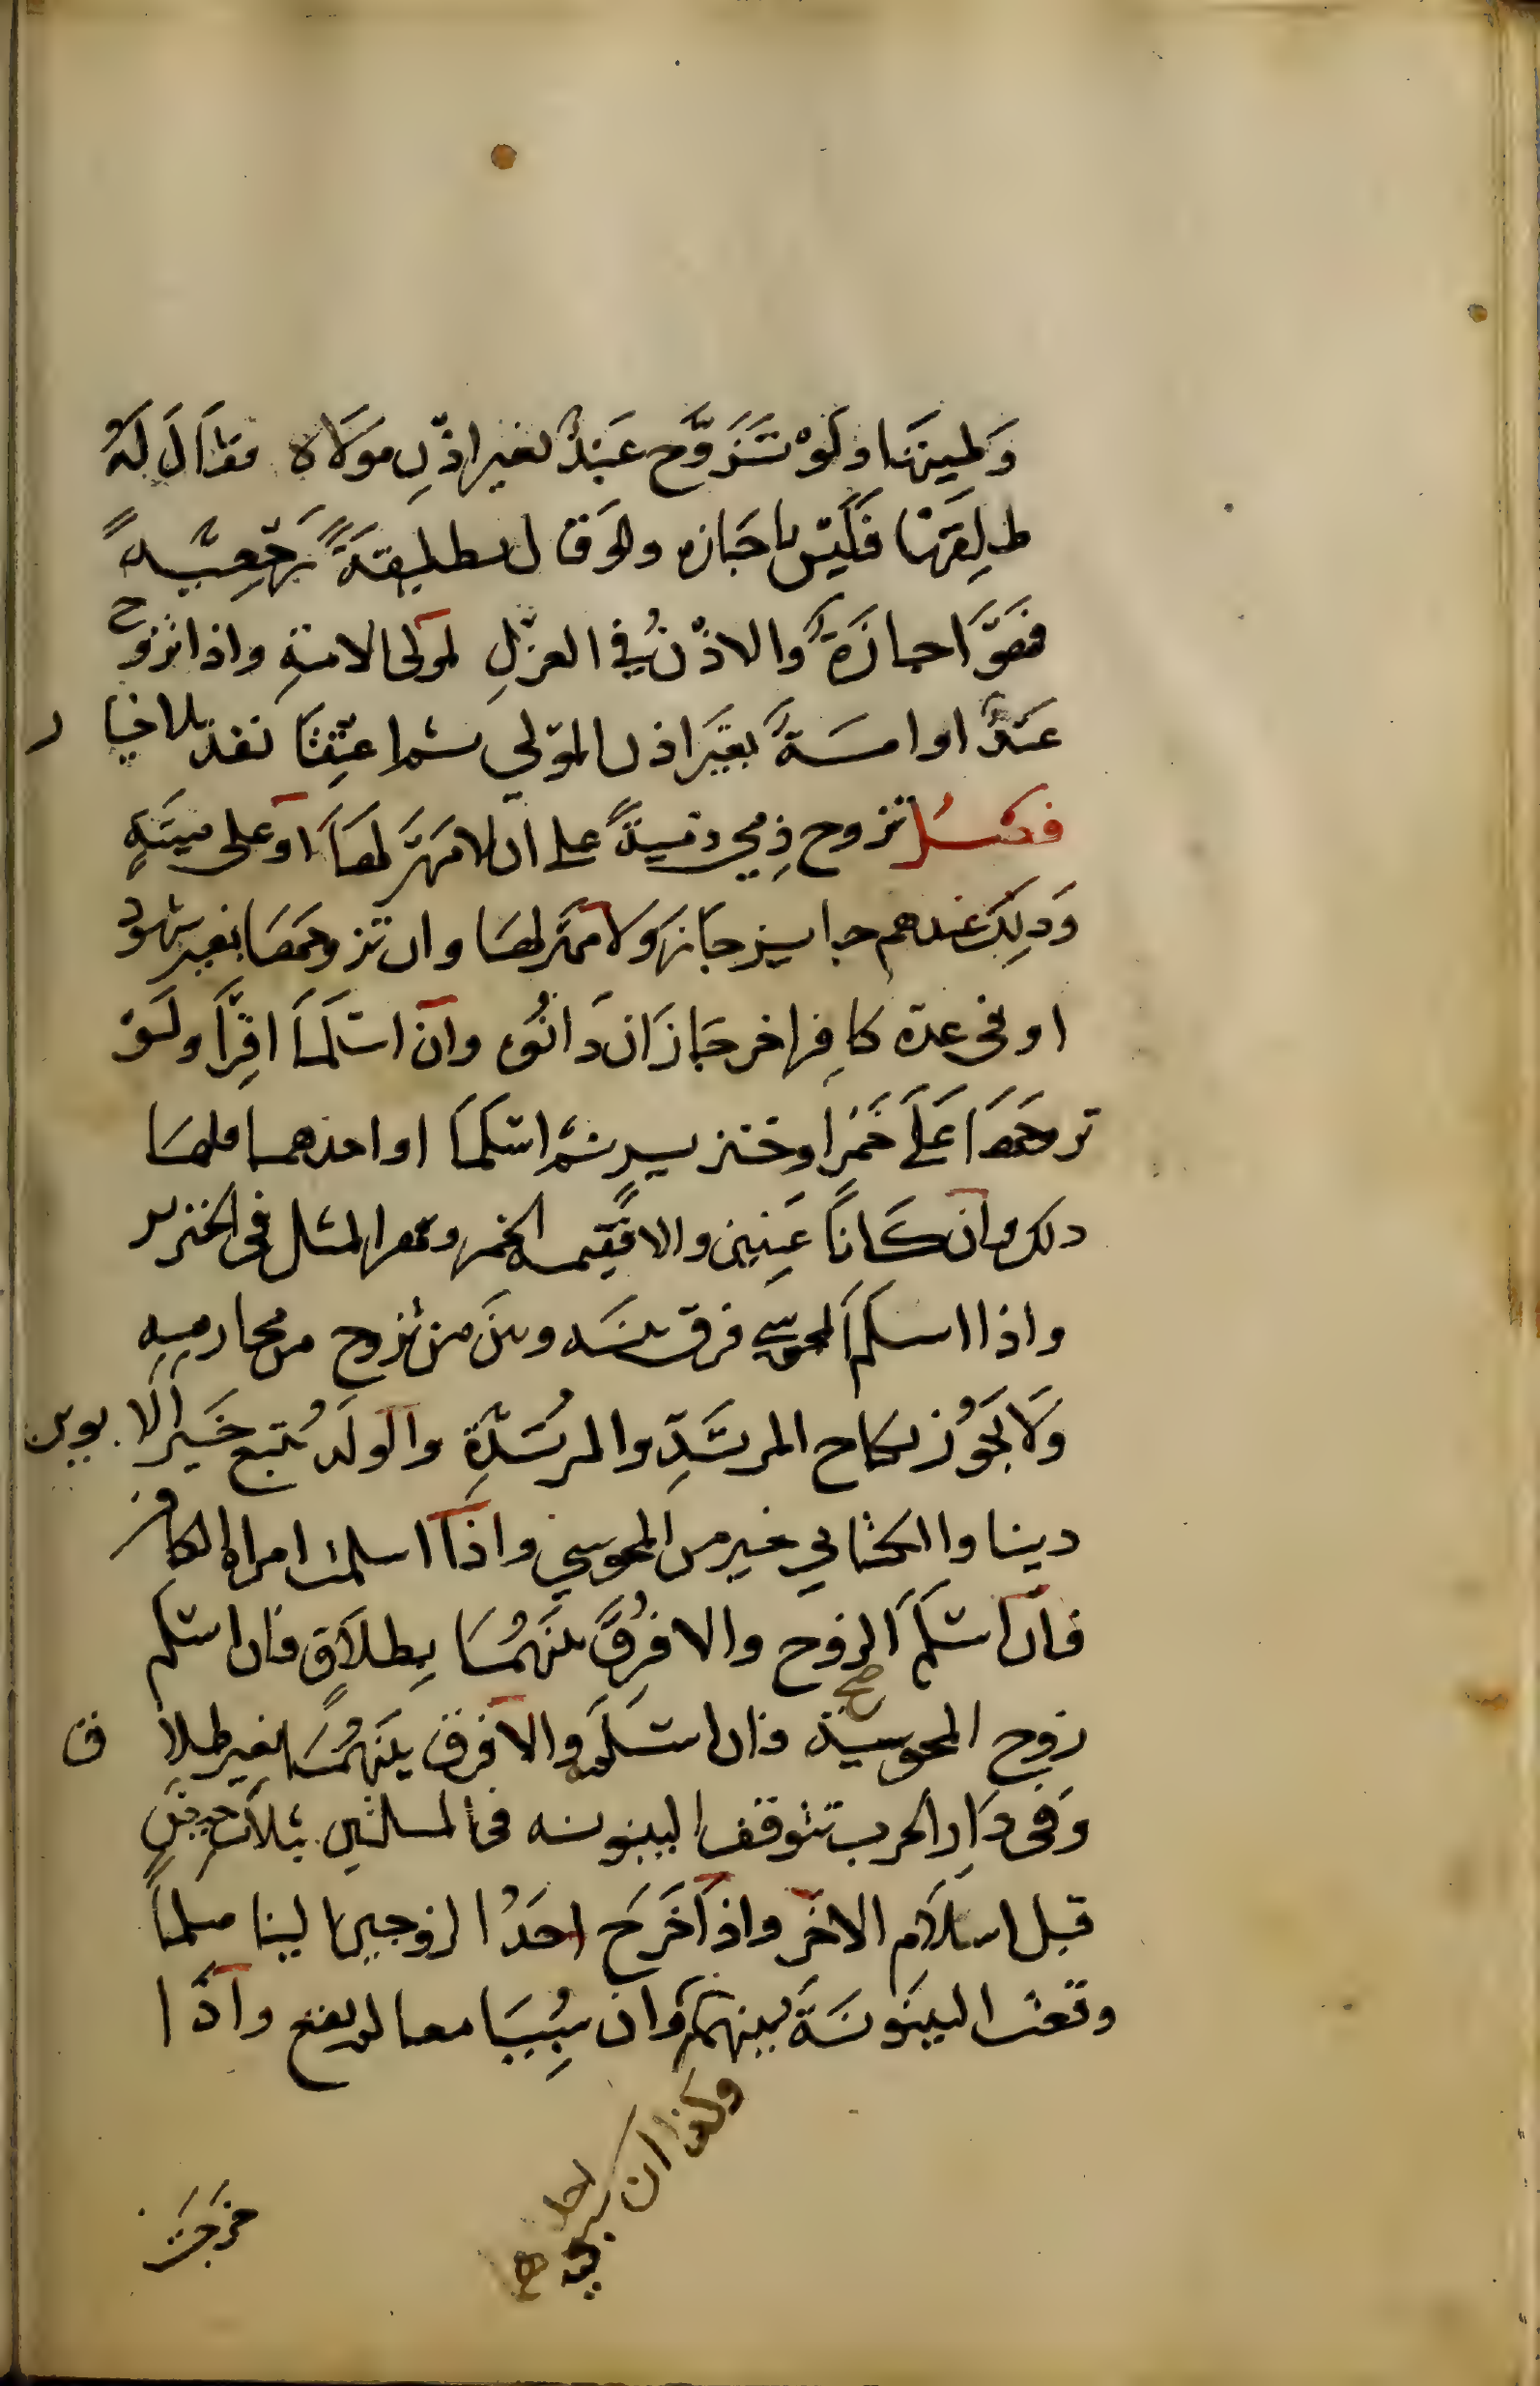 وَطيبها ولَوْ تَزَوَّج عَبْدٌ بغير اذْنِ مولاه فقال لَهُ
طلِقهَا فليْسَ باجَازه ولو قال تطليقةً رجْعِيَّةً
فهوَ اجازَةٌ والاذْنُ في العزْلِ لمولى الامةِ واذا تزوّج
عَبْدٌ او امةٌ بغيَر اذن المَوْلي ثم اعتِقَا نفذ بلا خيار
فصْلُ تزوج ذِمي ذميةً على ان لا مَهْرَ لهَا اوْ على ميتَةٍ
وَذلِكَ عندهم جايز جاز ولا مهْر لهَا وان تزوجهَا بغير شهُود
او فى عدة كافِر اخر جَاز ان دَانُوه وان اسْلمَا اقِرَّا ولَوْ
تزوجهَا عَلَى خَمْرٍ او خنزير ثم اسْلمَا او احدهما فلهَا
ذلك ان كانَا عَينين والا فقيمة الخمر ومهر المثل فى الخنزير
واذا اسلم المجوسي فرق بينَه وبينَ من تزوج من محارمِهِ
وَلَا يَجُوْز نكاح المرتَدِّ والمرْتَدَّةِ والولَدُ يتبع خَيْر الابوين
دينا والكتابي خير من المجوسي واذا اسلمت امراة الكافر
فان اسْلَمَ الزوج والا فُرِقَ بينَهُمَا بِطلاَقٍ فان اسْلم
زوج المجوسية فان اسْلَمت والا فرق بينَهُمَا بغير طلاق
وَفى دَارِ الحرب تتوقف البينونه فى المسلتين بثلاث حِيَضٍ
قبل اسلاَم الاخَر واذا خَرَجَ احَدُ الزوجين الينا مسلمًا
وقعت البينُونَةَ بينهمَا وَان سُبِيَا معا لم يقع واذَا
وكذا ان سبي احدهما
خرجَتْ